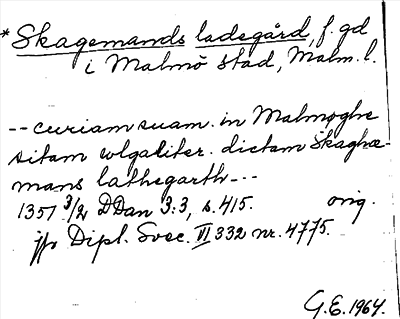 * Skagemands ladegård, f. gd
i Malmö stad, Malm. l.
-- curiam suam. in Malmøghe
sitam wlgaliter. dictam Skaghæ-
mans lathegarth ---
1351 3/2 DDan 3:3, s. 415. orig.
jfr Dipl. Svec. VI 332 nr. 4775.
G.E. 1964.